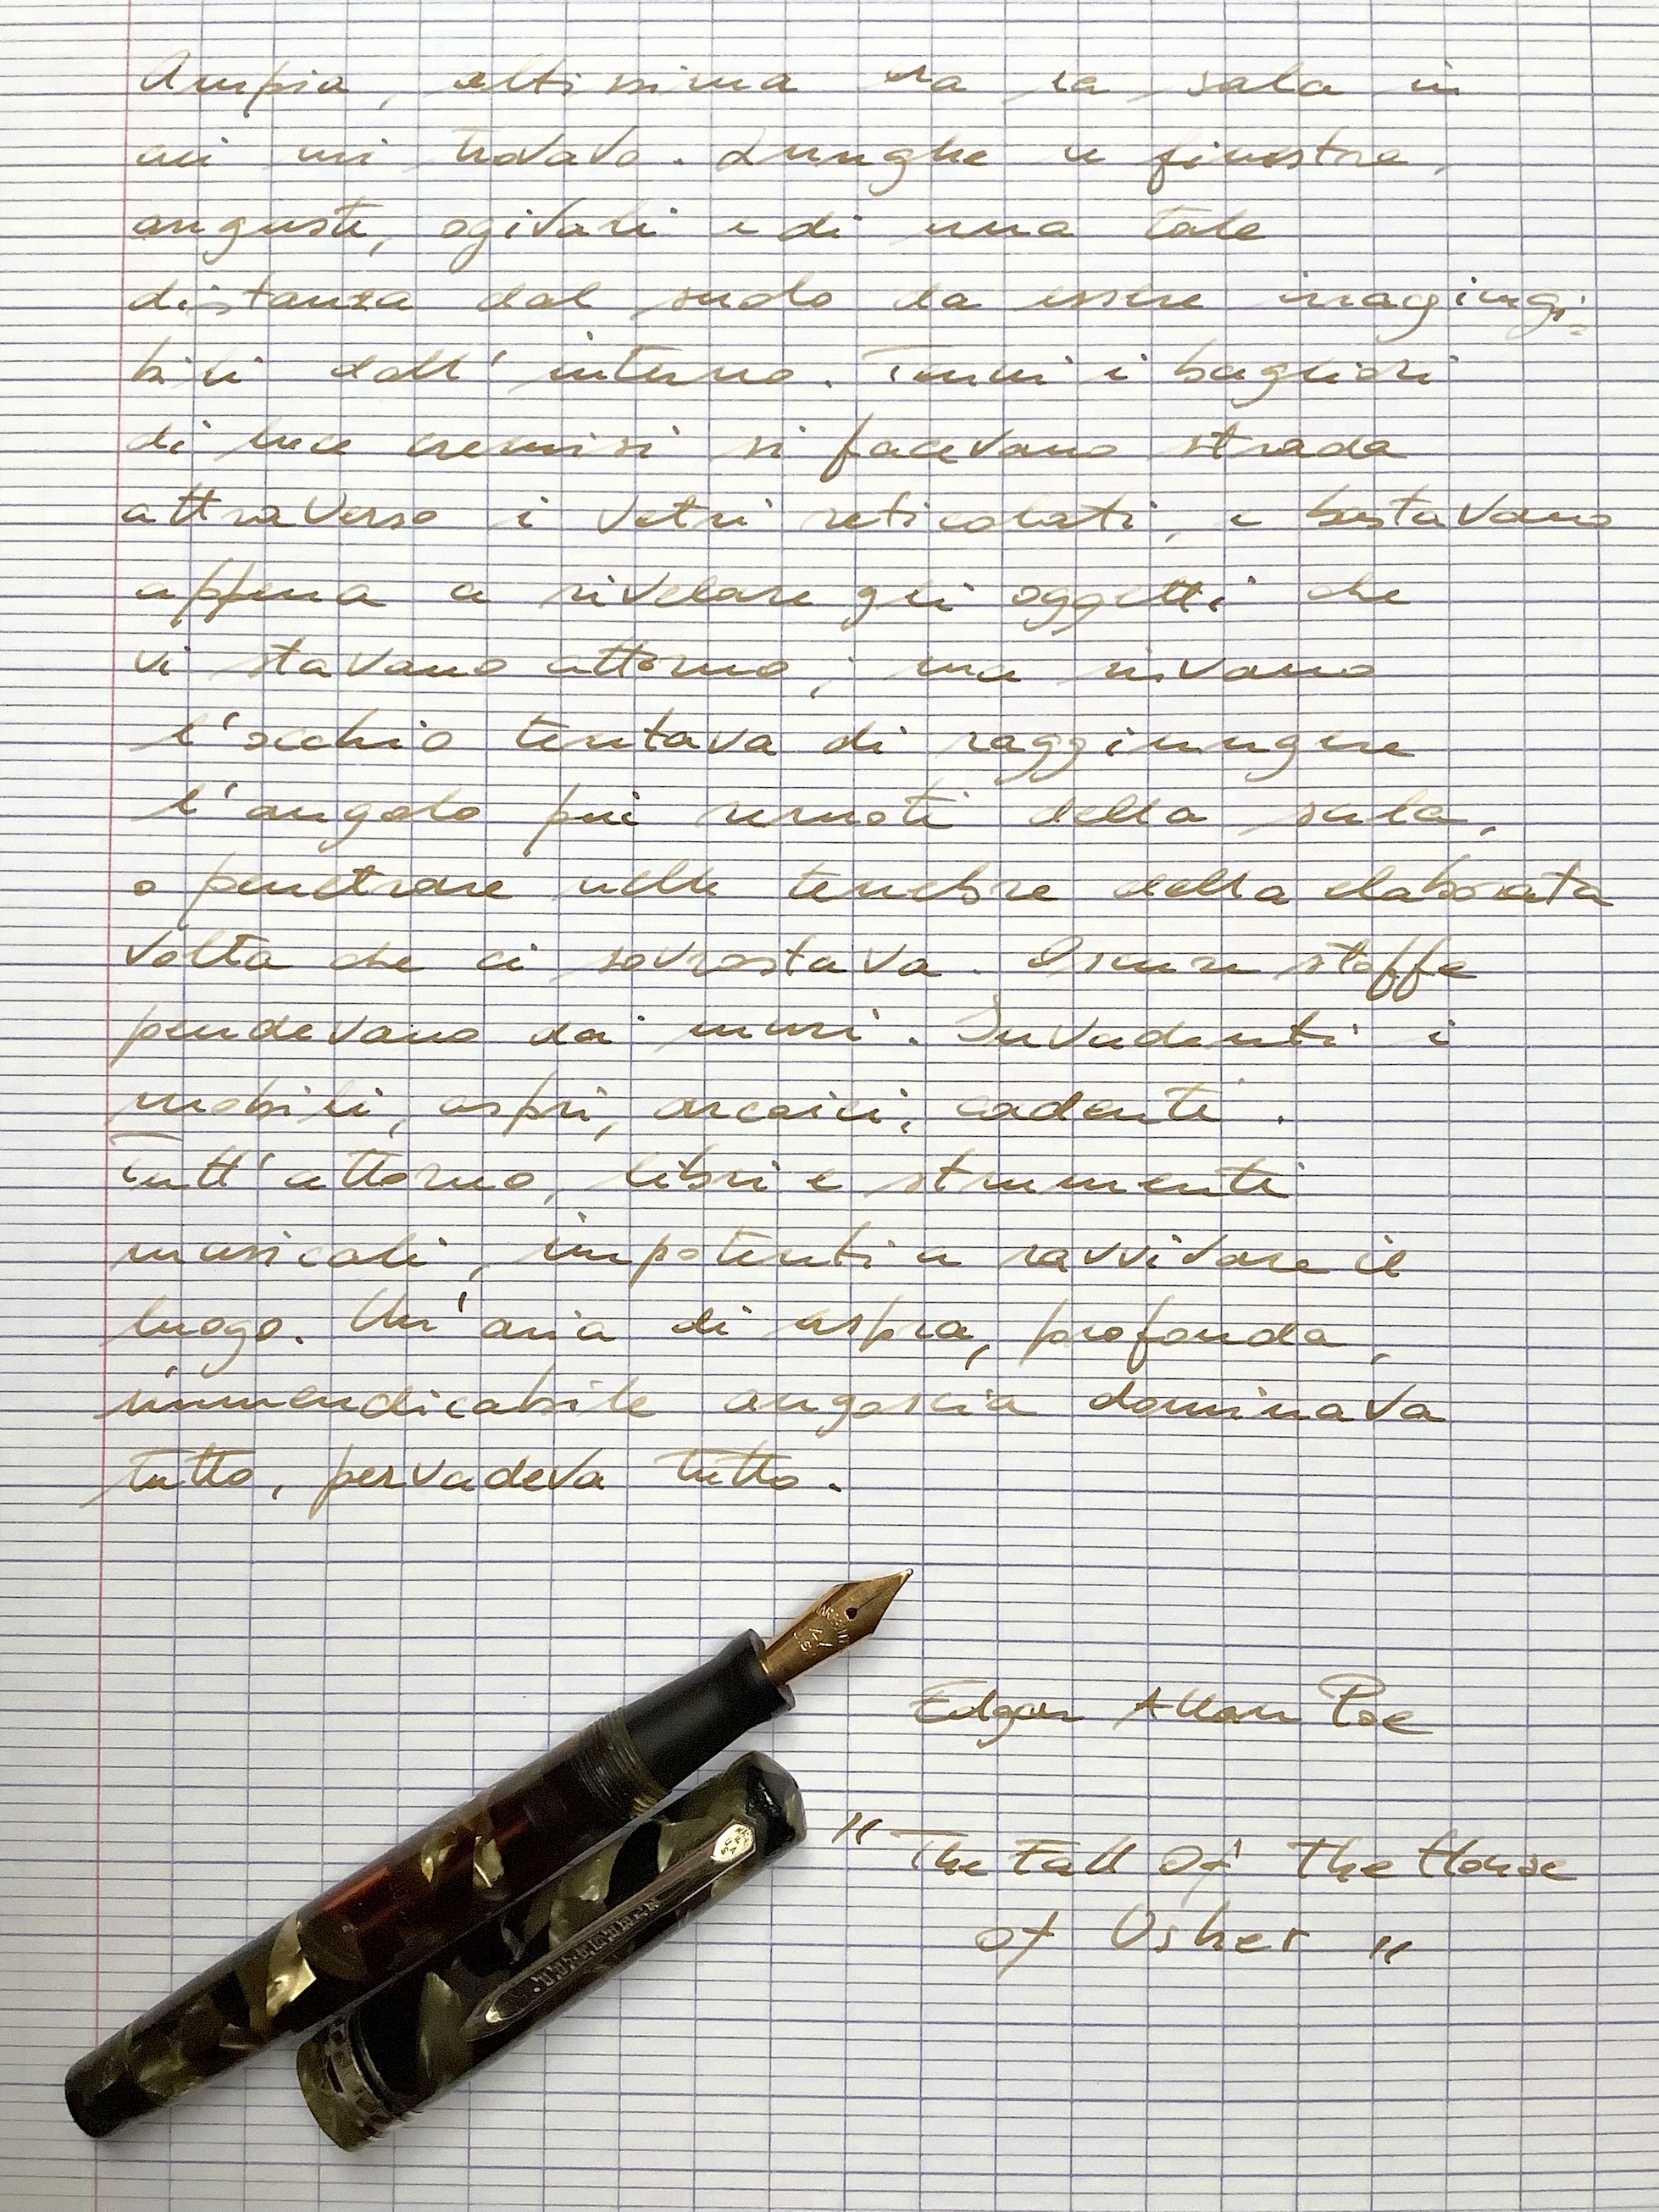 Ampia, altissima era la sala in
cui mi trovavo. Lunghe le finestre,
anguste, ogivali e di una tale
distanza dal suolo da essere irraggiungi-
bili dall'interno. Tenui i bagliori
di luce cremisi si facevano strada
attraverso i vetri reticolati, e bastavano
appena a rivelare gli oggetti che
vi stavano attorno; ma invano
l'occhio tentava di raggiungere
l'angolo più remoti della sala,
o penetrare nelle tenebre della elaborata
volta che ci sovrastava. Oscure stoffe
pendevano dai muri. Invadenti i
mobili, aspri, arcaici, cadenti.
Tutt'attorno, libri e strumenti
musicali, impotenti a ravvivare il
luogo. Un'aria di aspra, profonda,
immendicabile angoscia dominava
tutto, pervadeva tutto.
Edgar Allan Poe
"The Fall Of The House
of Usher"